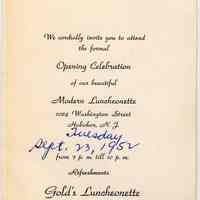 We cordially invite you to attend
the formal
Opening Celebration
of our beautiful
Modern Luncheonette
1024 Washington Street
Hoboken, N. J.
Tuesday
Sept. 23, 1952
from 7 p. m. till 10 p. m.
Refreshments
Gold's Luncheonette